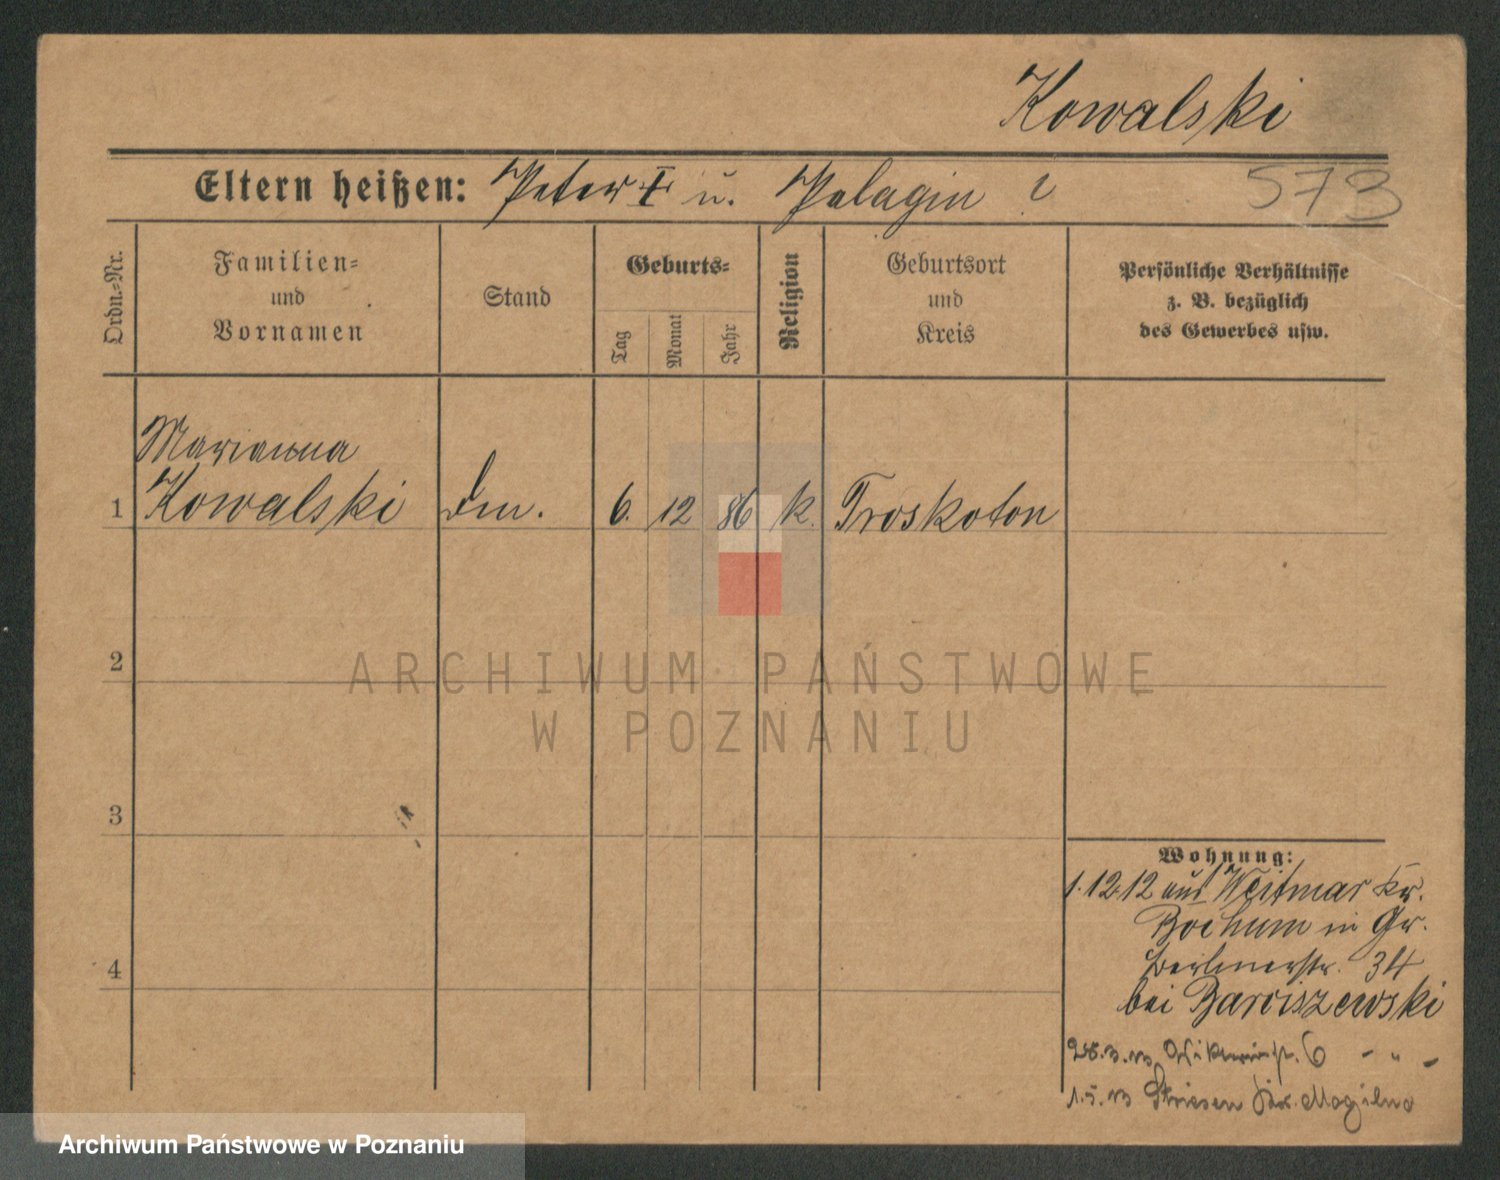 Kowalski
Eltern heißen: Peter † u. Pelagia
573
Ordn.-Nr.
Familien-
und
Vornamen
Stand
Geburts-
Tag
Monat
Jahr
Religion
Geburtsort
und
Kreis
Persönliche Verhältnisse
z. B. bezüglich
des Gewerbes usw.
Marianna
1 Kowalski 6. 12 86 k. Troskoton
2
ARCHIWUM PAŃSTWOWE
W POZNANIU
3
4
Wohnung:
1.12.12 aus Weitmar Kr.
Bochum in Gr.
Berlinerstr. 34
bei Barciszewski
28.3.13 6 - " -
1.5.13 Mogilno
Archiwum Państwowe w Poznaniu